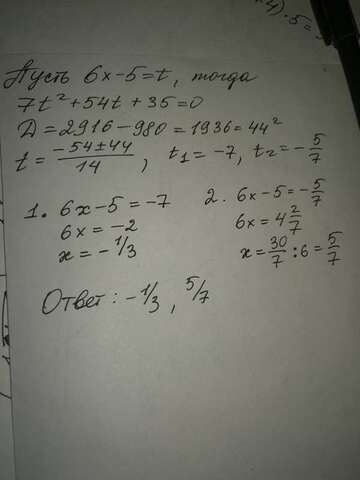 Пусть 6x-5=t, тогда
7t²+54t+35=0
Д=2916-980=1936=44²
t=(-54±44)/14, t₁=-7, t₂=-5/7
1. 6x-5=-7
6x=-2
x=-1/3
2. 6x-5=-5/7
6x=4 2/7
x=30/7:6=5/7
Ответ: -1/3, 5/7